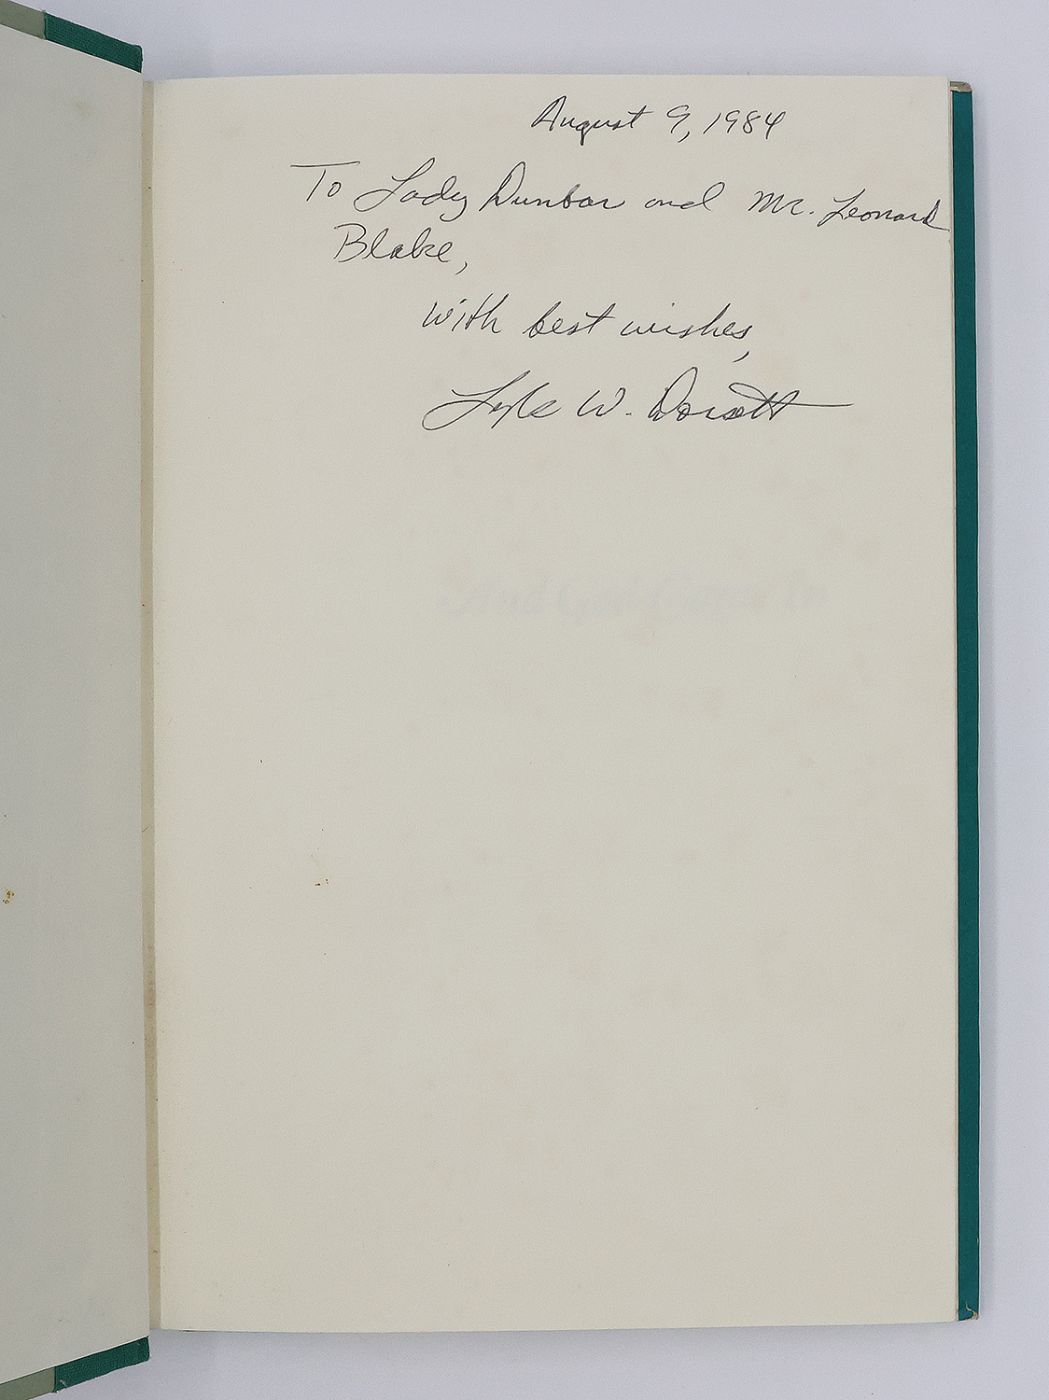 August 9, 1984
To Lady Dunbar and Mr. Leonard
Blake,
with best wishes,
Lyle W. Dorsett
And God Came In